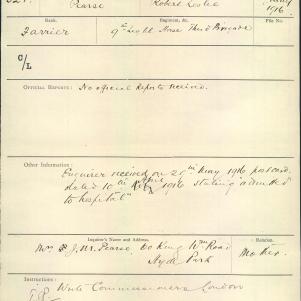 Pearse Robert Leslie
1916
Rank. Regiment, &c. File No.
Farrier 9th Light Horse Third Brigade
C/L
OFFICIAL REPORTS: No official Reports received.
Other Information:
Enquirer received on 29th May 1916 postcard
dated 10th April 1916 stating "admitted
to hospital"
Inquirer's Name and Address. Relation.
Mrs J. M. Pearse, 60 King Wm Road Mother
Hyde Park
Instructions: Write Commissioners London